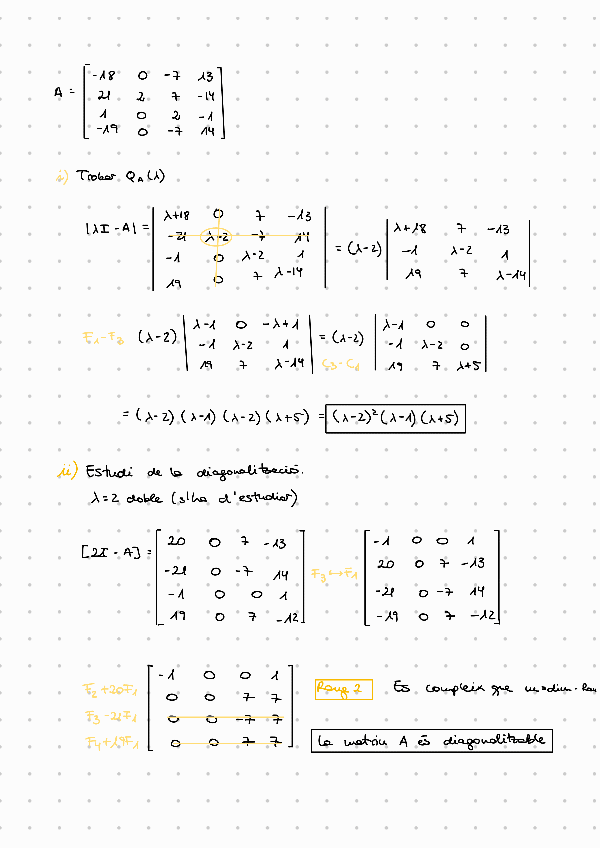 A = [ -18 0 -7 13
21 2 7 -14
1 0 2 -1
-19 0 -7 14 ]
i) Trobar Q_A(λ)
|λI - A| = | λ+18 0 7 -13
-21 λ-2 -7 14
-1 0 λ-2 1
19 0 7 λ-14 | = (λ-2) | λ+18 7 -13
-1 λ-2 1
19 7 λ-14 |
F1-F3 (λ-2) | λ-1 0 -λ+1
-1 λ-2 1
19 7 λ-14 | = (λ-2) C3-C1 | λ-1 0 0
-1 λ-2 0
19 7 λ+5 |
= (λ-2) (λ-1) (λ-2) (λ+5) = (λ-2)² (λ-1) (λ+5)
ii) Estudi de la diagonalització.
λ=2 doble (s'ha d'estudiar)
[2I - A] = [ 20 0 7 -13
-21 0 -7 14
-1 0 0 1
19 0 7 -12 ] F3↔F1 [ -1 0 0 1
20 0 7 -13
-21 0 -7 14
-19 0 7 -12 ]
F2+20F1
F3-21F1
F4+19F1 [ -1 0 0 1
0 0 7 7
0 0 -7 7
0 0 7 7 ]
Rang 2 Es compleix que m=dim-
la matriu A és diagonalitzable